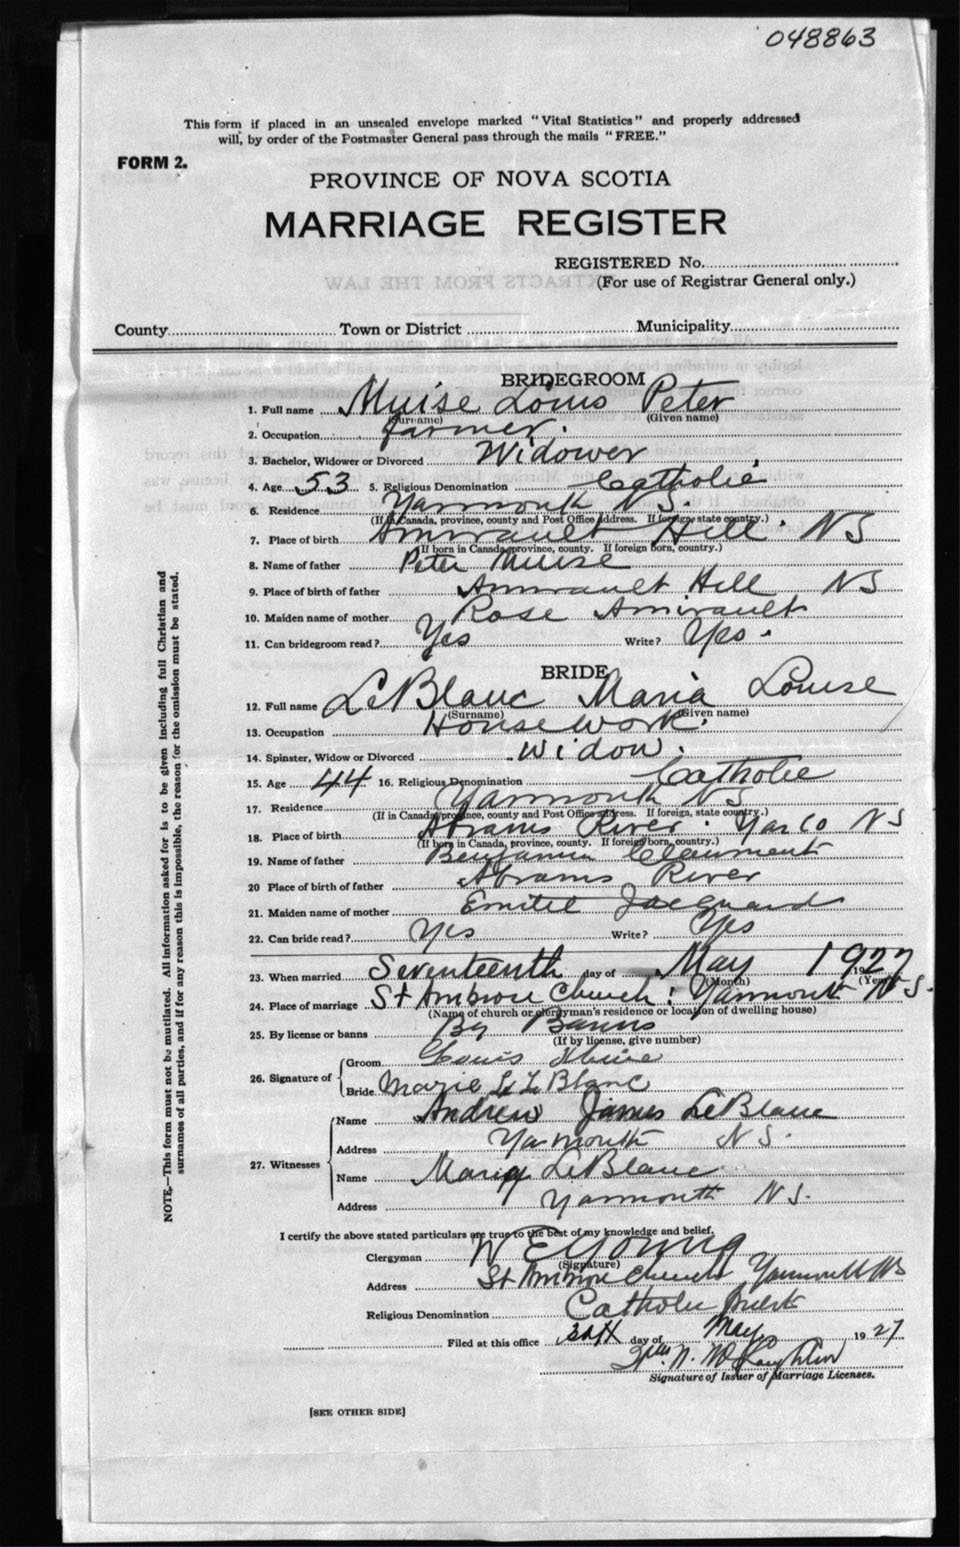 048863
This form if placed in an unsealed envelope marked "Vital Statistics" and properly addressed
will, by order of the Postmaster General pass through the mails "FREE."
FORM 2.
PROVINCE OF NOVA SCOTIA
MARRIAGE REGISTER
REGISTERED No.
(For use of Registrar General only.)
County Town or District Municipality
BRIDEGROOM
1. Full name Muise Louis Peter
(Surname) (Given name)
2. Occupation farmer.
3. Bachelor, Widower or Divorced Widower
4. Age 53 5. Religious Denomination Catholic
6. Residence Yarmouth N S.
(If in Canada, province, county and Post Office address. If foreign, state country.)
7. Place of birth Amirault Hill N S
(If born in Canada, province, county. If foreign born, country.)
8. Name of father Peter Muise
9. Place of birth of father Amirault Hill N S
10. Maiden name of mother Rose Amirault
11. Can bridegroom read? Yes Write? Yes.
BRIDE
12. Full name LeBlanc Maria Louise
(Surname) (Given name)
13. Occupation Housework.
14. Spinster, Widow or Divorced Widow.
15. Age 44 16. Religious Denomination Catholic
17. Residence Yarmouth N S
(If in Canada, province, county and Post Office address. If foreign, state country.)
18. Place of birth Abrams River. Yar Co N S
(If born in Canada, province, county. If foreign born, country.)
19. Name of father Benjamin
20 Place of birth of father Abrams River
21. Maiden name of mother Jacquard
22. Can bride read? Yes Write? Yes
23. When married Seventeenth day of May 1927
(Month) (Year)
24. Place of marriage St Ambrose Church: Yarmouth N S.
(Name of church or clergyman's residence or location of dwelling house)
25. By license or banns By Banns
(If by license, give number)
26. Signature of
Groom Louis Muise
Bride Marie L LeBlanc
27. Witnesses
Name Andrew James LeBlanc
Address Yarmouth N S.
Name Mary LeBlanc
Address Yarmouth N S.
I certify the above stated particulars are true to the best of my knowledge and belief.
Clergyman W E Young
(Signature)
Address St Ambrose Church Yarmouth N S
Religious Denomination Catholic Priest
Filed at this office day of May 1927
Signature of Issuer of Marriage Licenses.
[SEE OTHER SIDE]
NOTE.—This form must not be mutilated. All information asked for is to be given including full Christian and
surnames of all parties, and if for any reason this is impossible, the reason for the omission must be stated.